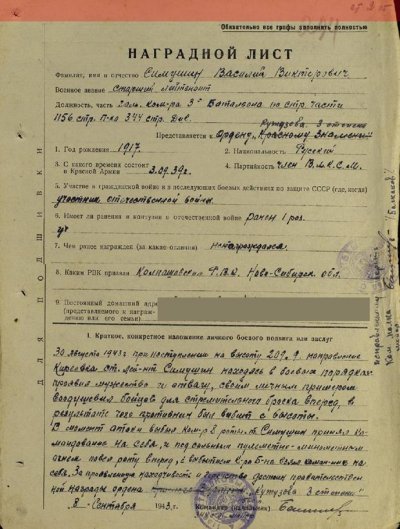 Обязательно все графы заполнить полностью
НАГРАДНОЙ ЛИСТ
Фамилия, имя и отчество Симушин Василий Викторович
Военное звание Старший лейтенант
Должность, часть Зам. ком-ра 3го Батальона по стр. части
1156 стр. П-ка 344 стр. Див. Кутузова 3 степени
Представляется к Ордену „Красному Знамени“
1. Год рождения 1917. 2. Национальность Русский
3. С какого времени состоит в Красной Армии 2.09.39г. 4. Партийность член В.Л.К.С.М.
5. Участие в гражданской войне и в последующих боевых действиях по защите СССР (где, когда)
участник отечественной войны
6. Имеет ли ранения и контузии в отечественной войне ранен 1 раз.
7. Чем ранее награжден (за какие отличия) не награждался
8. Каким РВК призван Колпашовским РВК Ново-Сибирск. обл.
9. Постоянный домашний адрес
(представляемого к награждению или его семьи)
ДЛЯ ПОДШИВКИ
I. Краткое, конкретное изложение личного боевого подвига или заслуг
30 августа 1943 г при наступлении на высоту 209.9
ст. лей-нт Симушин находясь в боевых порядках
проявил мужество и отвагу, своим личным примером
воодушевил бойцов для стремительного броска вперед, в
результате чего противник был выбит с высоты.
В момент атаки выбыл ком-р 8 роты, т. Симушин принял
командование на себя, и под сильным пулеметно-минометным
огнем повел роту вперед, с выбытием к-ра б-на взял ком-ние на
себя. За проявленную находчивость и достоин правительственной
награды ордена Кутузова 3 степени
8 Сентября 1943 г. Командир (начальник)